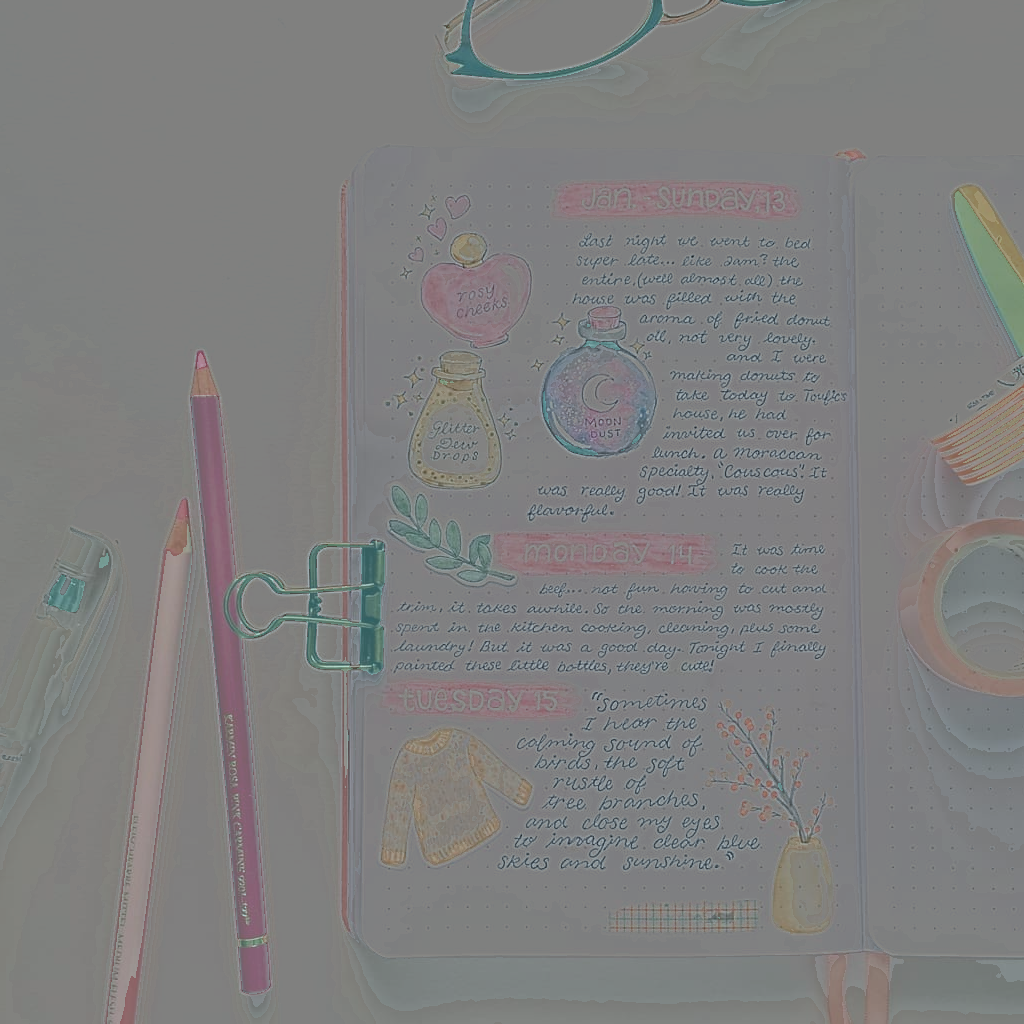 Jan. Sunday 13
Last night we went to bed
super late... like 2am? the
entire, (well almost all) the
house was filled with the
aroma of fried donut
oil, not very lovely.
and I were
making donuts to
take today to Toufic's
house, he had
invited us over for
lunch. A Moroccan
specialty, "Couscous". It
was really good! It was really
flavorful.
rosy
cheeks
MOON
DUST
Glitter
Dew
Drops
monday 14
It was time
to cook the
beef.... not fun having to cut and
trim, it takes awhile. So the morning was mostly
spent in the kitchen cooking, cleaning, plus some
laundry! But it was a good day. Tonight I finally
painted these little bottles, they're cute!
tuesday 15
"sometimes
I hear the
calming sound of
birds, the soft
rustle of
tree branches,
and close my eyes
to imagine clear blue
skies and sunshine."